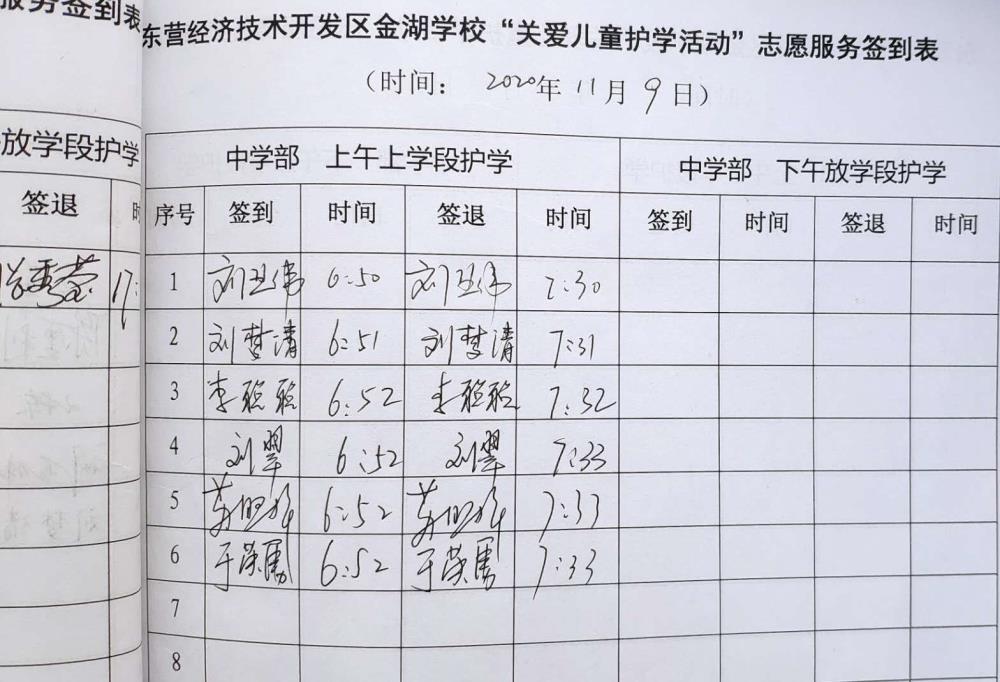 服务签到表
东营经济技术开发区金湖学校“关爱儿童护学活动”志愿服务签到表
（时间： 2020年 11月 9日）
放学段护学
中学部 上午上学段护学 中学部 下午放学段护学
签退 时
序号 签到 时间 签退 时间 签到 时间 签退 时间
17:
1 6:50 7:30
2 刘梦清 6:51 刘梦清 7:31
3 李聪聪 6:52 李聪聪 7:32
4 刘翠 6:52 刘翠 7:33
5 6:52 7:33
6 于荣勇 6:52 于荣勇 7:33
7
8